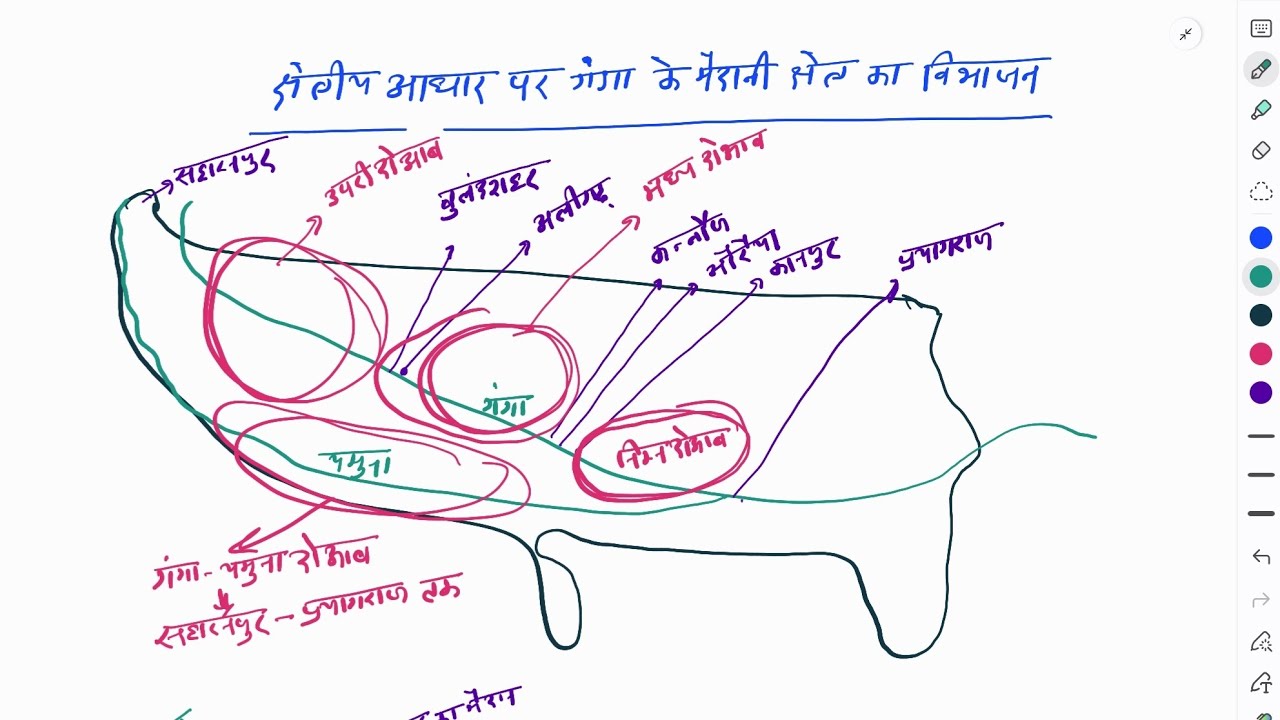 क्षेत्रीय आधार पर गंगा के मैदानी क्षेत्र का विभाजन
सहारनपुर
उपरी दोआब
बुलंदशहर
अलीगढ़
मध्य दोआब
कन्नौज
औरैया
कानपुर
प्रयागराज
गंगा
निम्न दोआब
यमुना
गंगा - यमुना दोआब
सहारनपुर - प्रयागराज तक
मैदान